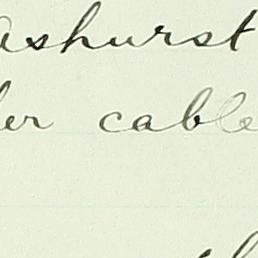 Ashurst
er cable